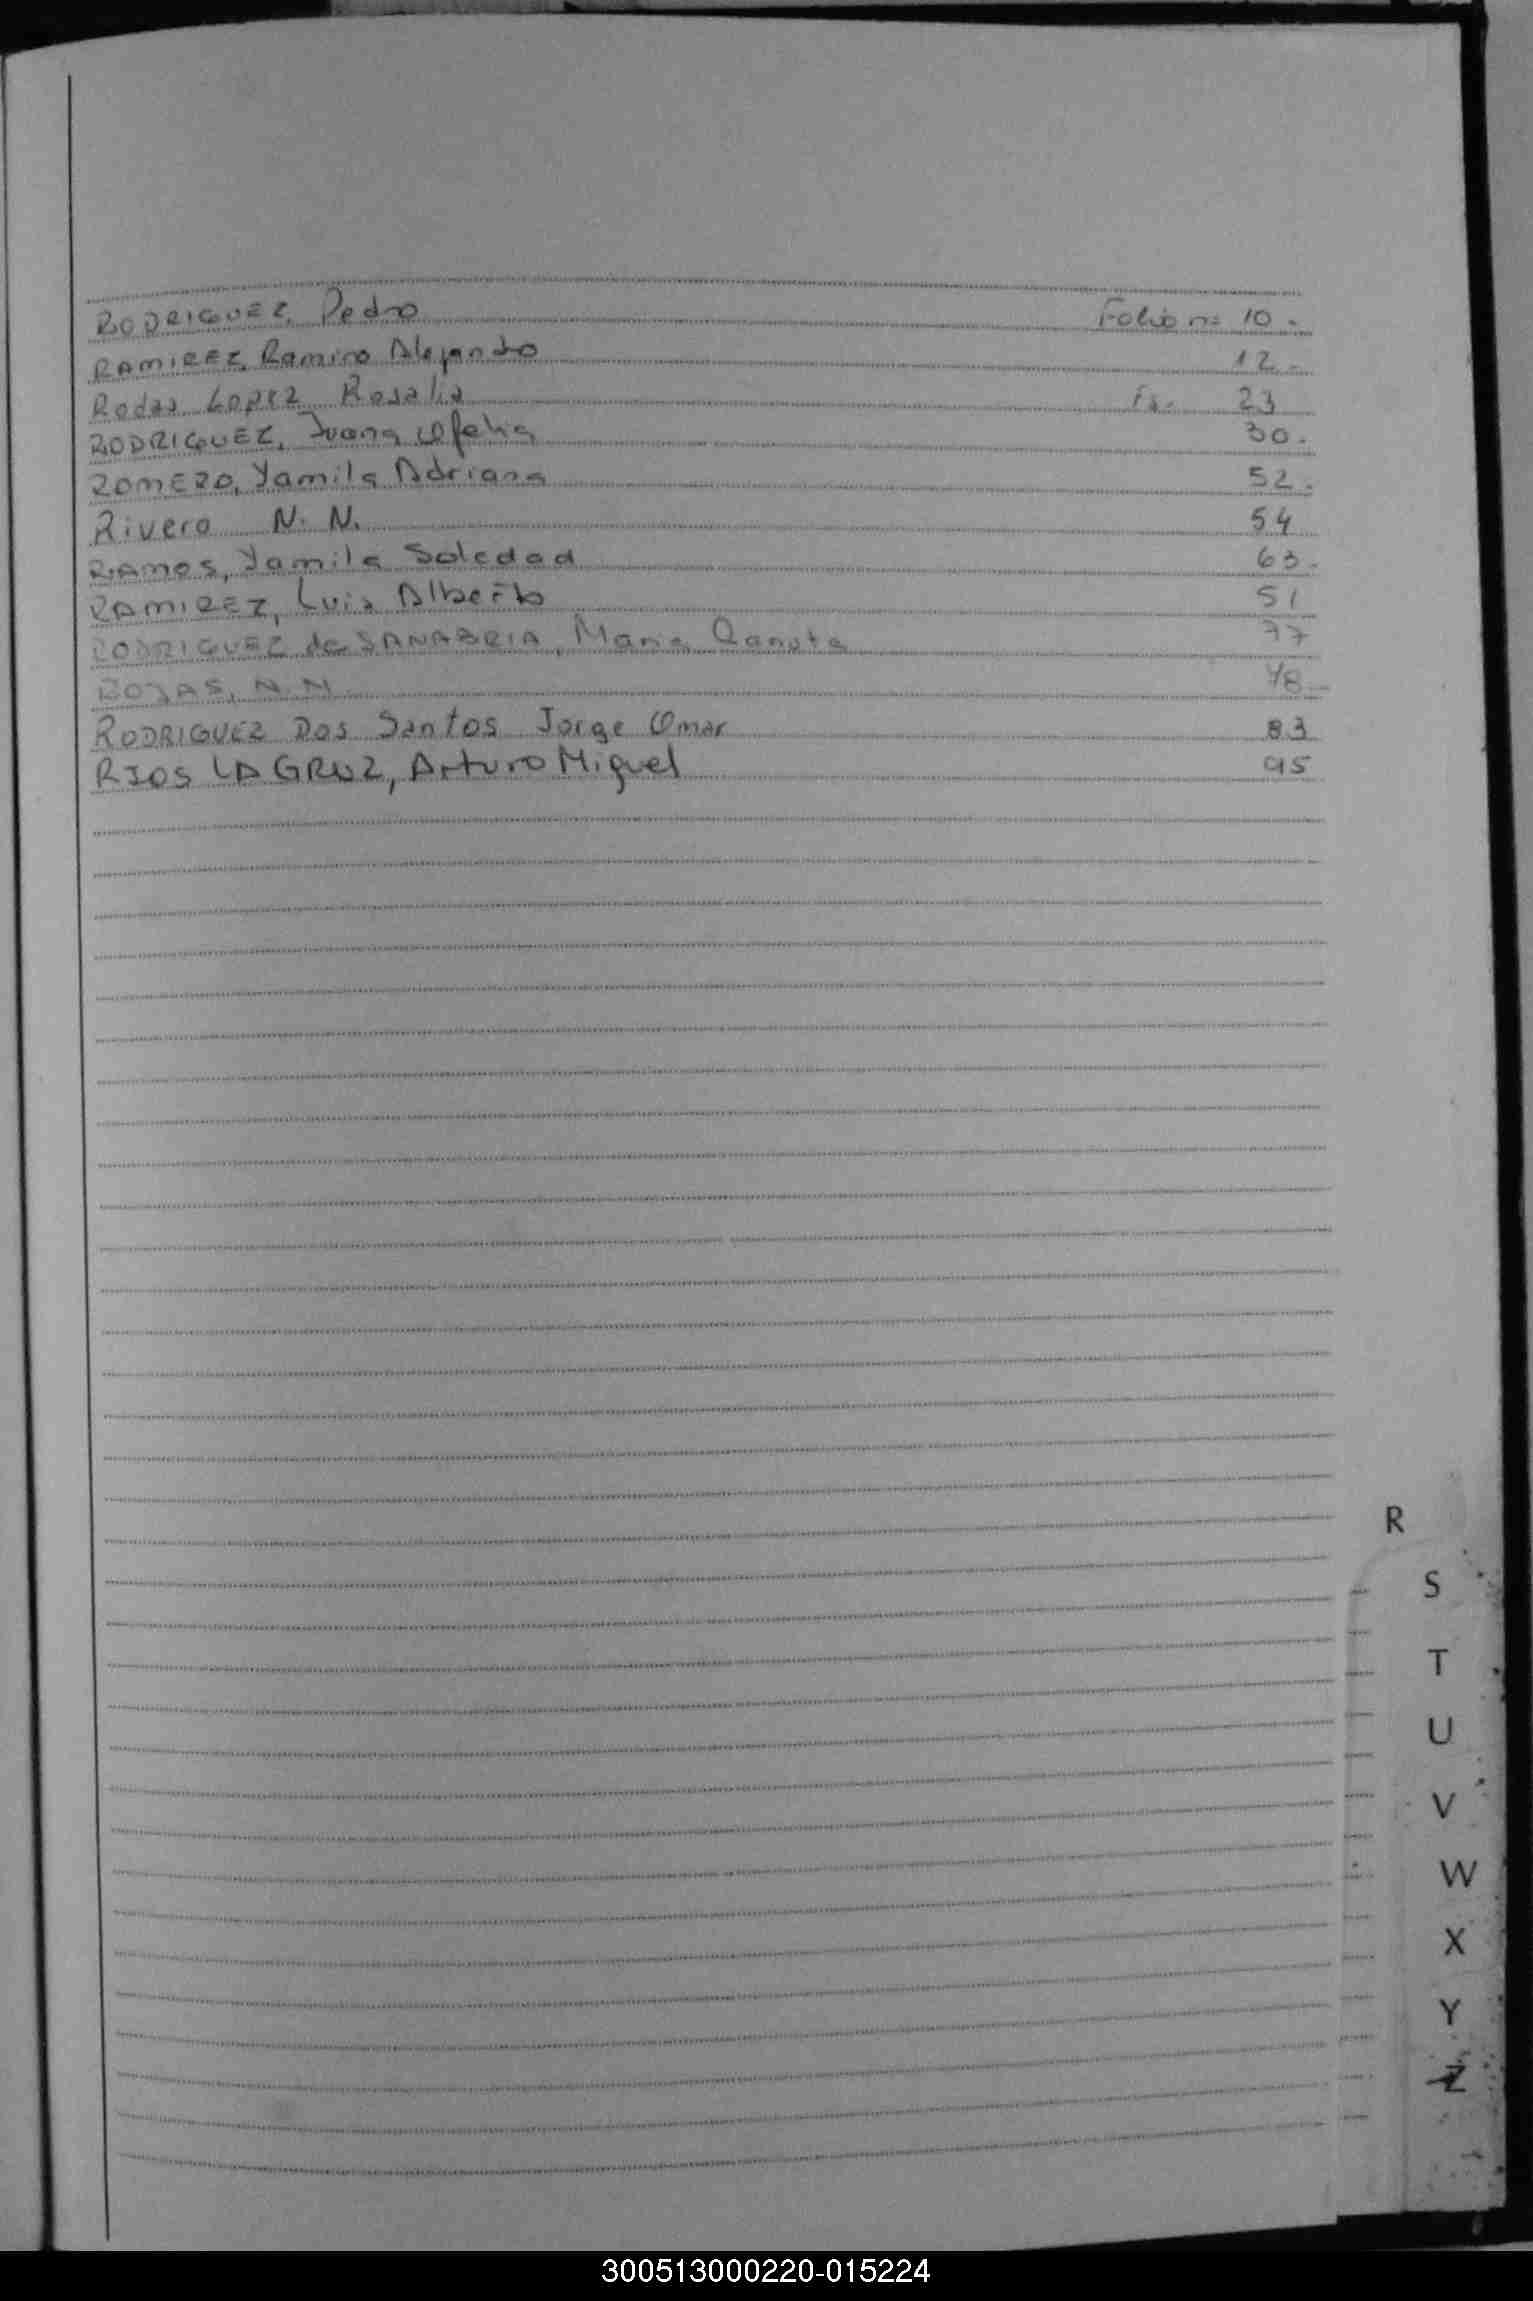 RODRIGUEZ, Pedro Folio nº 10.
RAMIREZ, Ramiro Alejandro 12.
Rodas Lopez Rosalia Fº. 23
RODRIGUEZ, Juana Ofelia 30.
ROMERO, Yamila Adriana 52.
Rivero N. N. 54
RAMOS, Yamila Soledad 63.
RAMIREZ, Luis Alberto 51
RODRIGUEZ de SANABRIA, Maria 77
ROJAS, N.N. 78
RODRIGUEZ Dos Santos Jorge Omar 83
RIOS LA GRUZ, Arturo Miguel 95
R
S
T
U
V
W
X
Y
Z
300513000220-015224